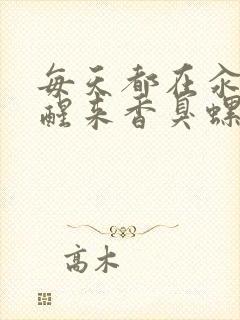 每天都在汆
醒来香臭螺
高木